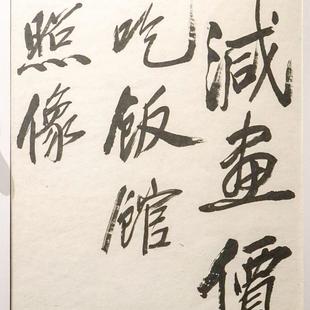 減畫價
吃飯館
照像